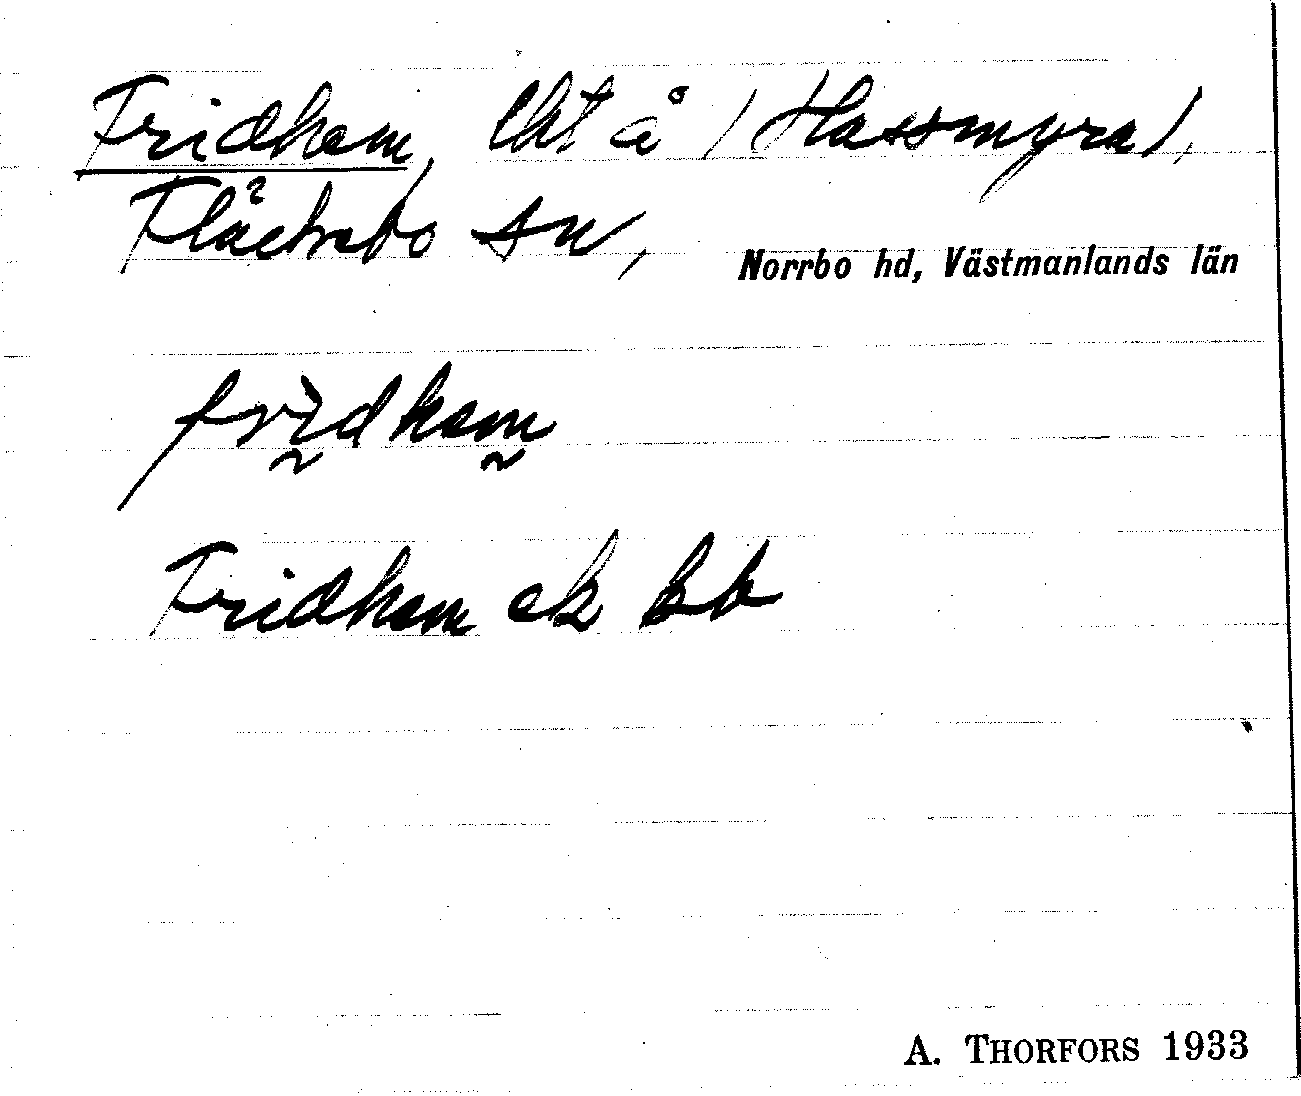 Fridhem, lht å (Hassmyra),
Fläckebo sn,
Norrbo hd, Västmanlands län
frìdhem
Fridhem ek bl
A. THORFORS 1933